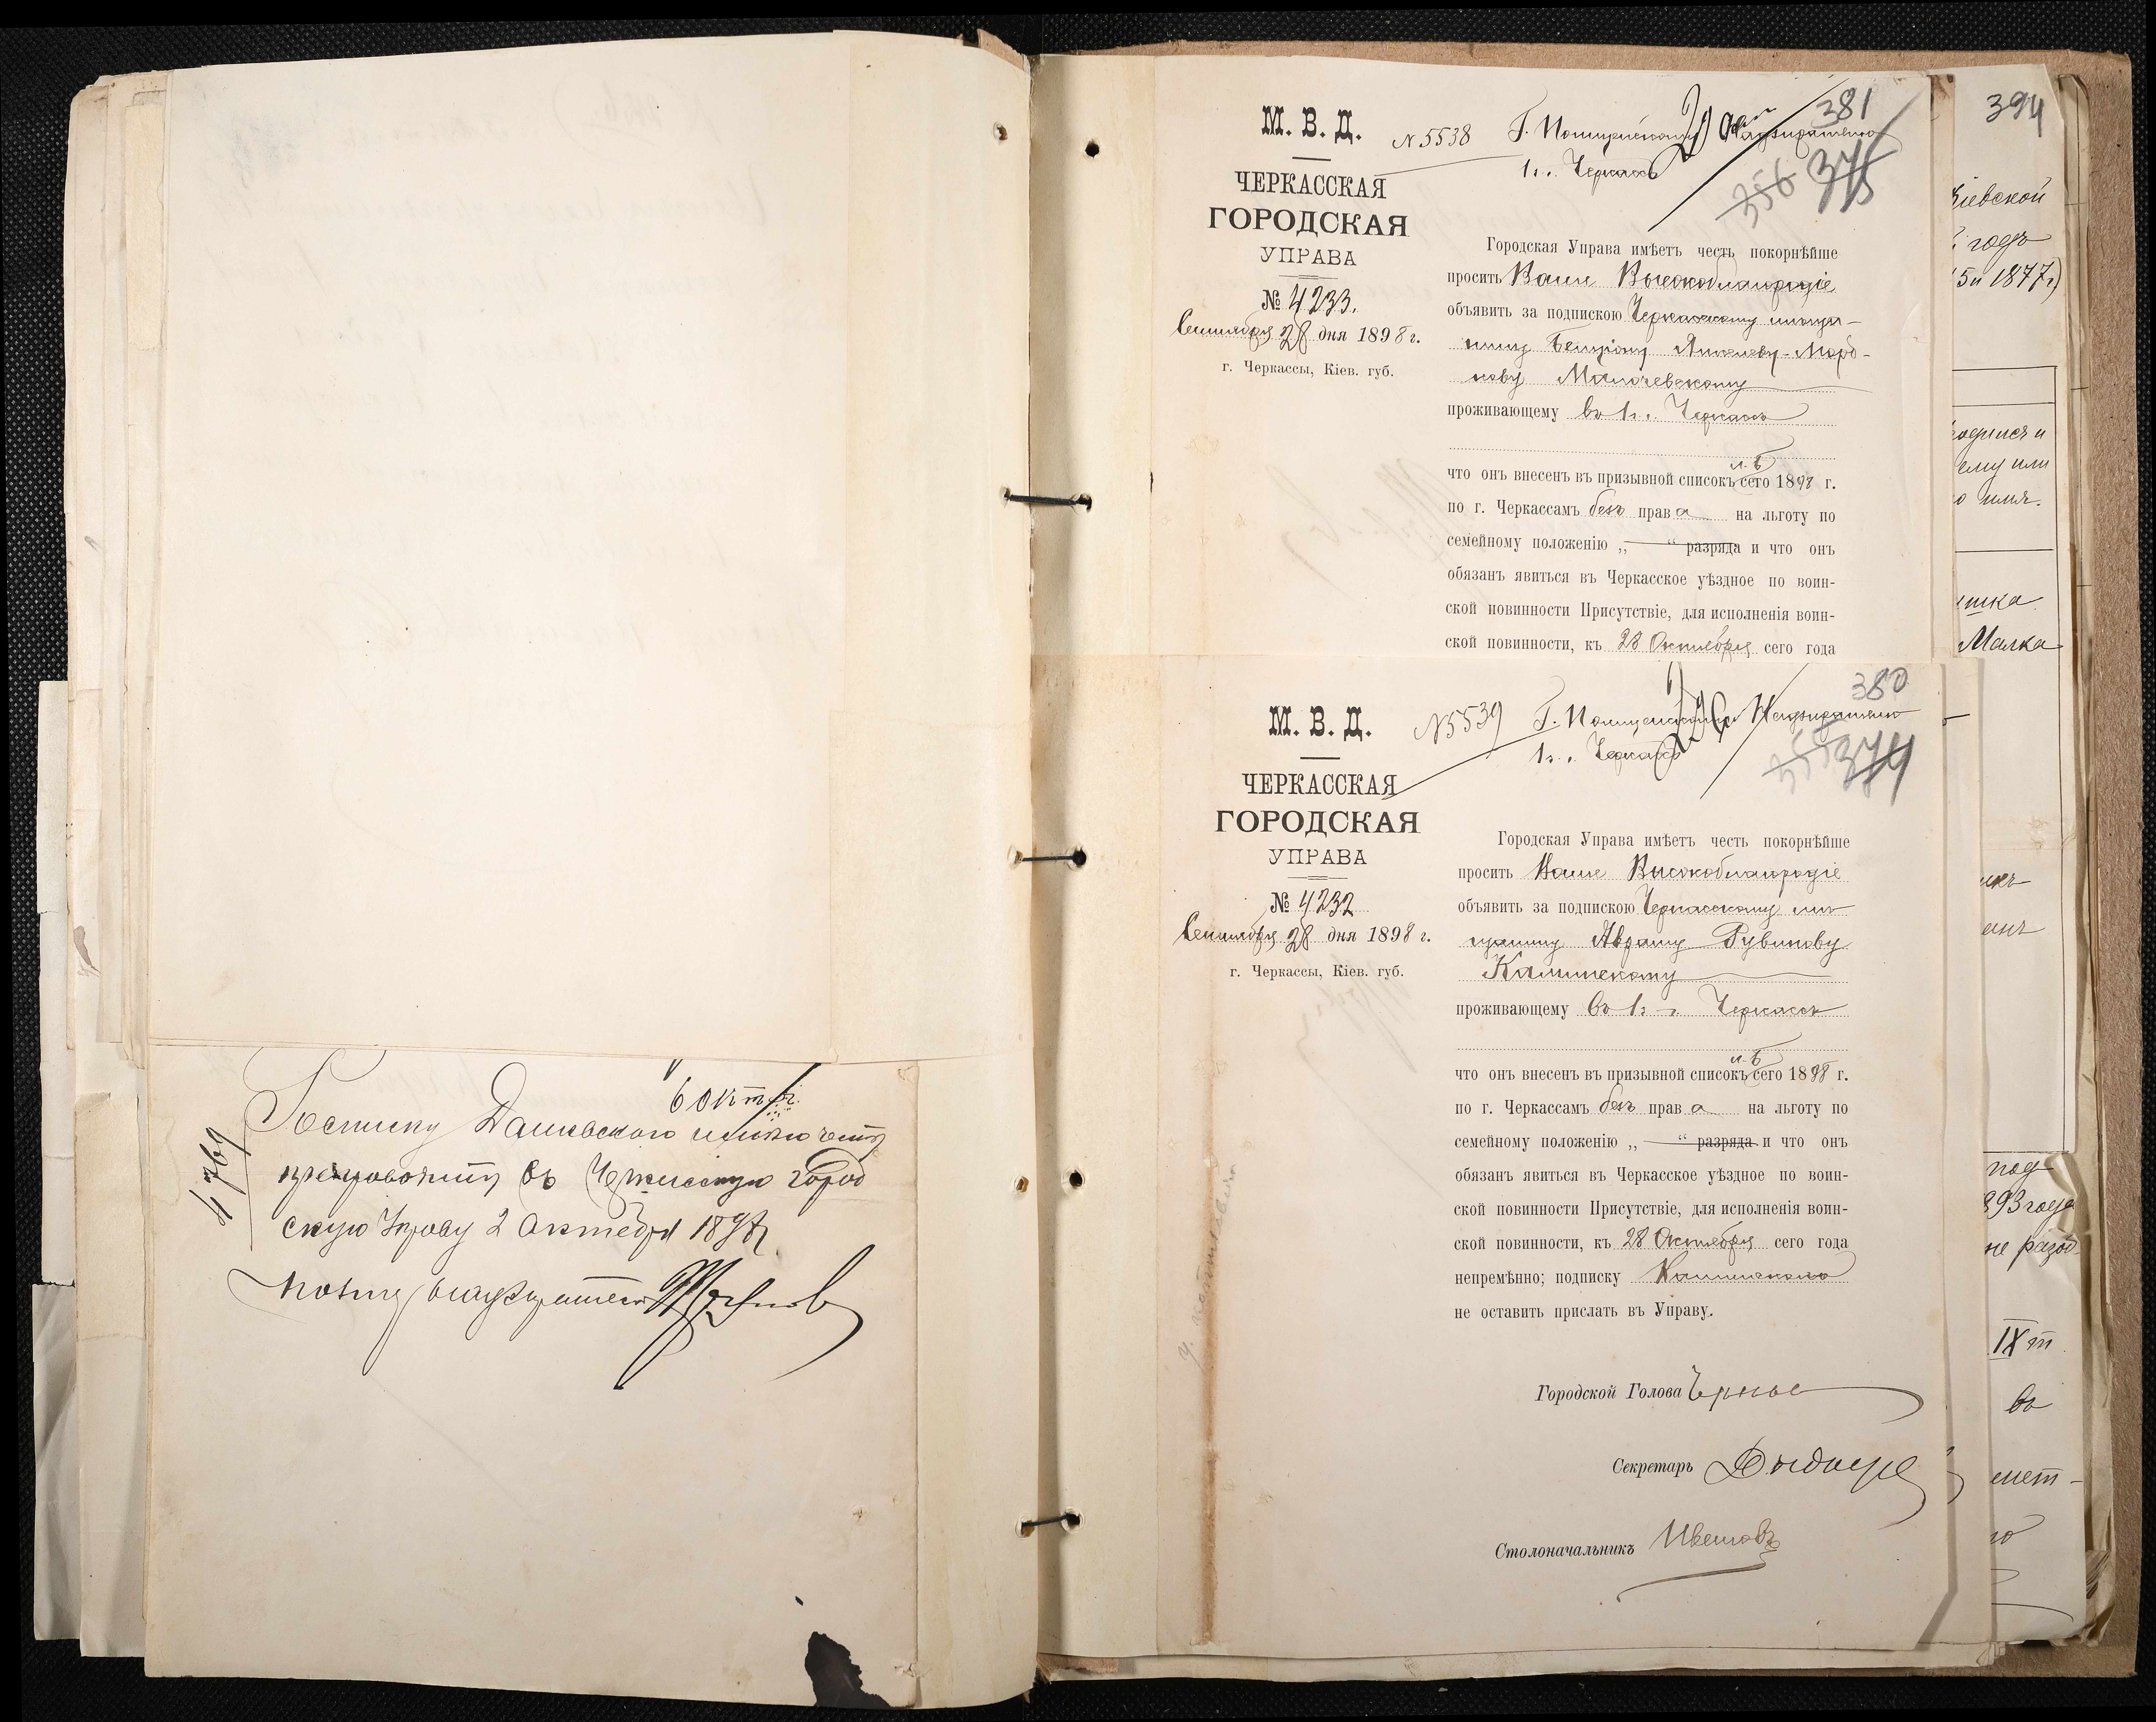 6 Окт.
4769
Росписку Дашевскаго имѣю честь
препроводить въ Черкасскую город
скую Управу 2 октября 1898 г.
М. В. Д.
№ 5538
Г. Полицейскому Надзирателю
1 ч. г. Черкассъ
381
356 375
ЧЕРКАССКАЯ
ГОРОДСКАЯ
УПРАВА
№ 4233.
Сентября 28 дня 1898 г.
г. Черкассы, Кіев. губ.
Городская Управа имѣетъ честь покорнѣйше
просить Ваше Высокоблагородіе
объявить за подпискою Черкасскому мѣща-
нину Бенціону Янкелеву-Морд-
кову Малочевскому
проживающему въ 1 ч. г. Черкассъ
что онъ внесенъ въ призывной списокъ л. Б сего 1898 г.
по г. Черкассамъ безъ права на льготу по
семейному положенію „ — “ разряда и что онъ
обязанъ явиться въ Черкасское уѣздное по воин-
ской повинности Присутствіе, для исполненія воин-
ской повинности, къ 28 Октября сего года
М. В. Д.
№ 5539
Г. Полицейскому Надзирателю
1 ч. г. Черкассъ
380
355 374
ЧЕРКАССКАЯ
ГОРОДСКАЯ
УПРАВА
№ 4232
Сентября 28 дня 1898 г.
г. Черкассы, Кіев. губ.
Городская Управа имѣетъ честь покорнѣйше
просить Ваше Высокоблагородіе
объявить за подпискою Черкасскому мѣ
щанину Авраму Рувинову
Калинскому
проживающему въ 1 ч. г. Черкассъ
что онъ внесенъ въ призывной списокъ л. Б сего 1898 г.
по г. Черкассамъ безъ права на льготу по
семейному положенію „ — “ разряда и что онъ
обязанъ явиться въ Черкасское уѣздное по воин-
ской повинности Присутствіе, для исполненія воин-
ской повинности, къ 28 Октября сего года
непремѣнно; подписку Калинскаго
не оставить прислать въ Управу.
Городской Голова
Секретарь
Столоначальникъ
394
Кіевской
годъ
5 и 1877 г)
родился и
ему или
имя.
Малка
под
893 года
не разод
IX т
въ